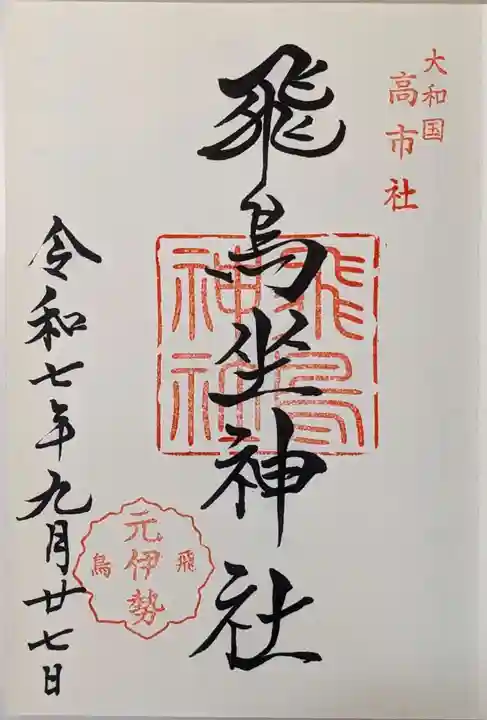 大和国
高市社
飛鳥坐神社
飛鳥
神社
飛鳥
元伊勢
令和七年九月廿七日